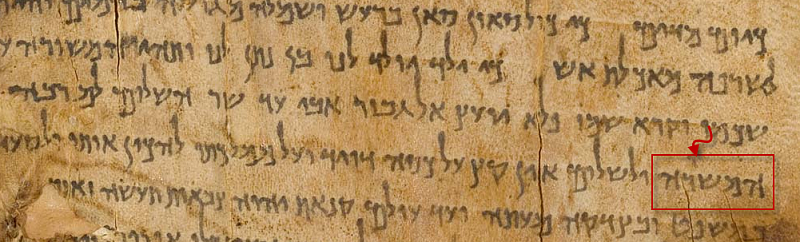 כיום מדים כי כול סאון סאן ברעש ושמלה
לשרפה מאכלת אש כי ילד יולד לנו בן נתן לנו ותהי המשורה
שכמו וקרא שמו פלא יועץ אל גבור אבי עד שר השלום לם רבה
המשורה ולשלום אין קץ על כסה דויד ועל ממלכתו להכין אותו
במשפט ובצדקה מעתה ועד עולם קנאת יהוה צבאות תעשה זואת